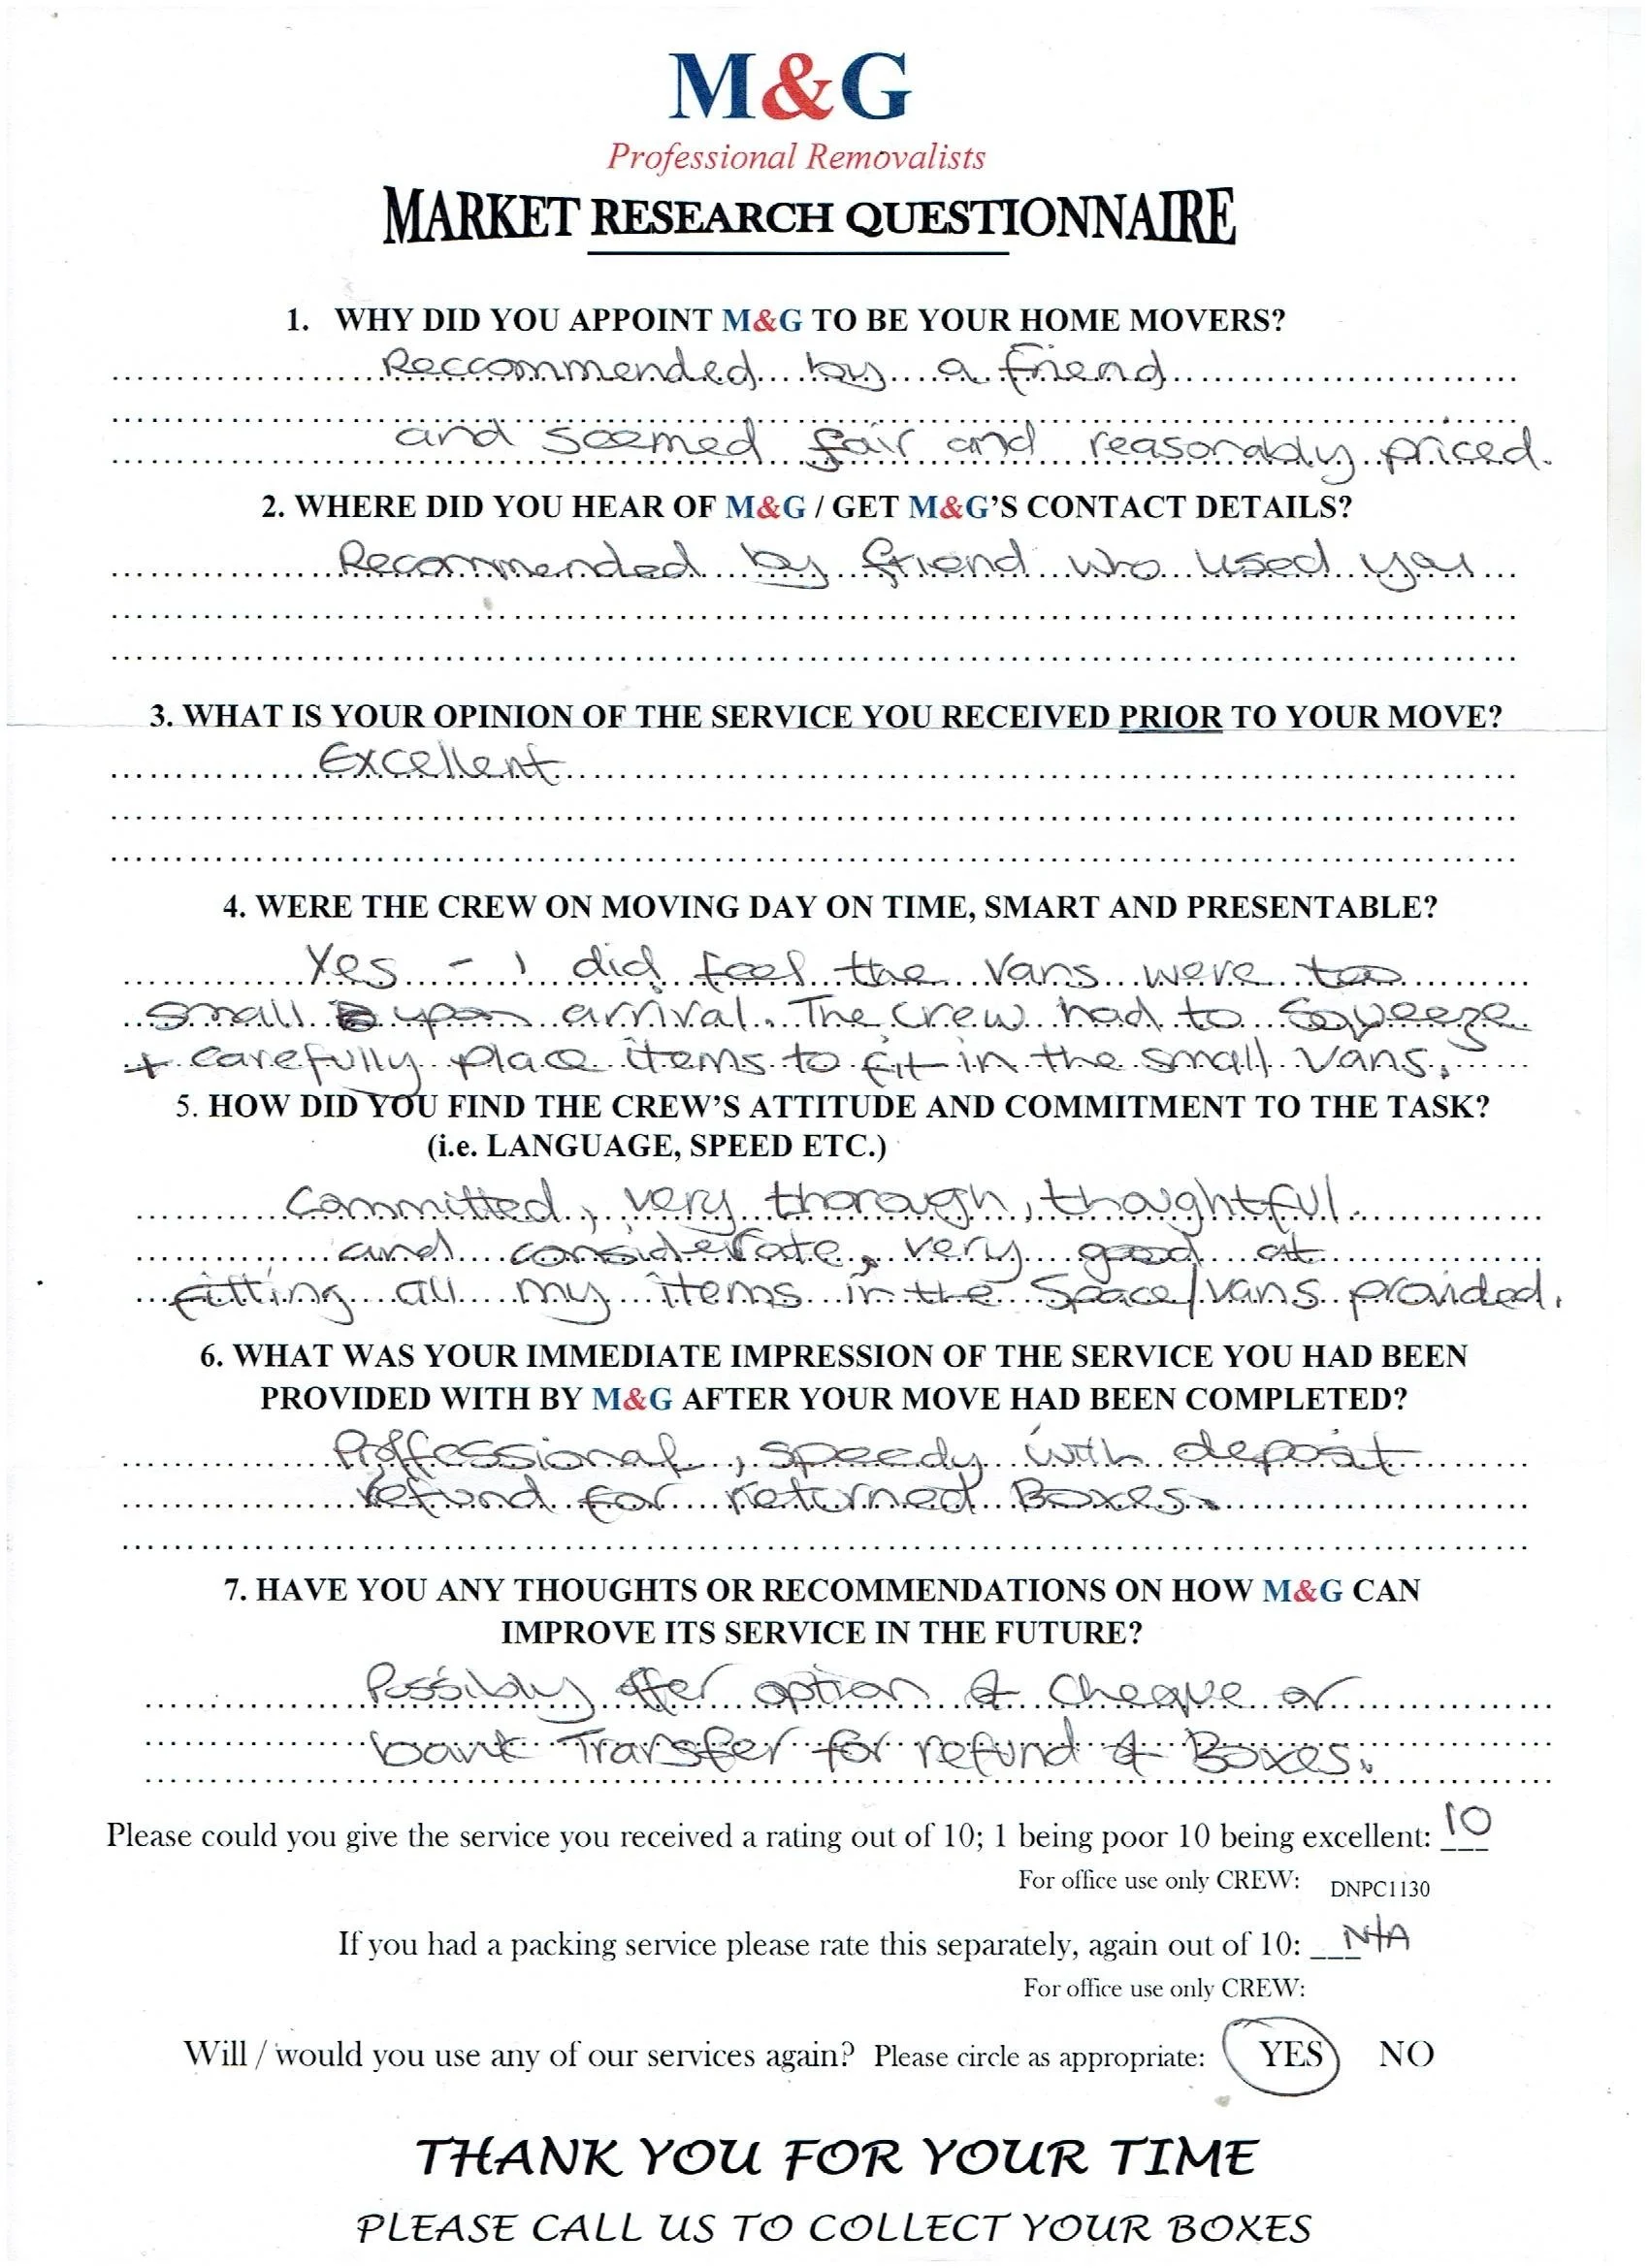 M&G
Professional Removalists
MARKET RESEARCH QUESTIONNAIRE
1. WHY DID YOU APPOINT M&G TO BE YOUR HOME MOVERS?
Reccommended by a friend
and seemed fair and reasonably priced.
2. WHERE DID YOU HEAR OF M&G / GET M&G'S CONTACT DETAILS?
Recommended by friend who used you
3. WHAT IS YOUR OPINION OF THE SERVICE YOU RECEIVED PRIOR TO YOUR MOVE?
Excellent
4. WERE THE CREW ON MOVING DAY ON TIME, SMART AND PRESENTABLE?
Yes - I did feel the vans were too
small upon arrival. The crew had to squeeze
+ carefully place items to fit in the small vans.
5. HOW DID YOU FIND THE CREW'S ATTITUDE AND COMMITMENT TO THE TASK?
(i.e. LANGUAGE, SPEED ETC.)
Committed, very thorough, thoughtful
and considerate, very good at
fitting all my items in the space/vans provided.
6. WHAT WAS YOUR IMMEDIATE IMPRESSION OF THE SERVICE YOU HAD BEEN
PROVIDED WITH BY M&G AFTER YOUR MOVE HAD BEEN COMPLETED?
Proffessional, speedy with deposit
refund for returned Boxes.
7. HAVE YOU ANY THOUGHTS OR RECOMMENDATIONS ON HOW M&G CAN
IMPROVE ITS SERVICE IN THE FUTURE?
Possibly offer option of cheque or
bank Transfer for refund of Boxes.
Please could you give the service you received a rating out of 10; 1 being poor 10 being excellent: 10
For office use only CREW: DNPC1130
If you had a packing service please rate this separately, again out of 10: N/A
For office use only CREW:
Will / would you use any of our services again? Please circle as appropriate: YES NO
THANK YOU FOR YOUR TIME
PLEASE CALL US TO COLLECT YOUR BOXES